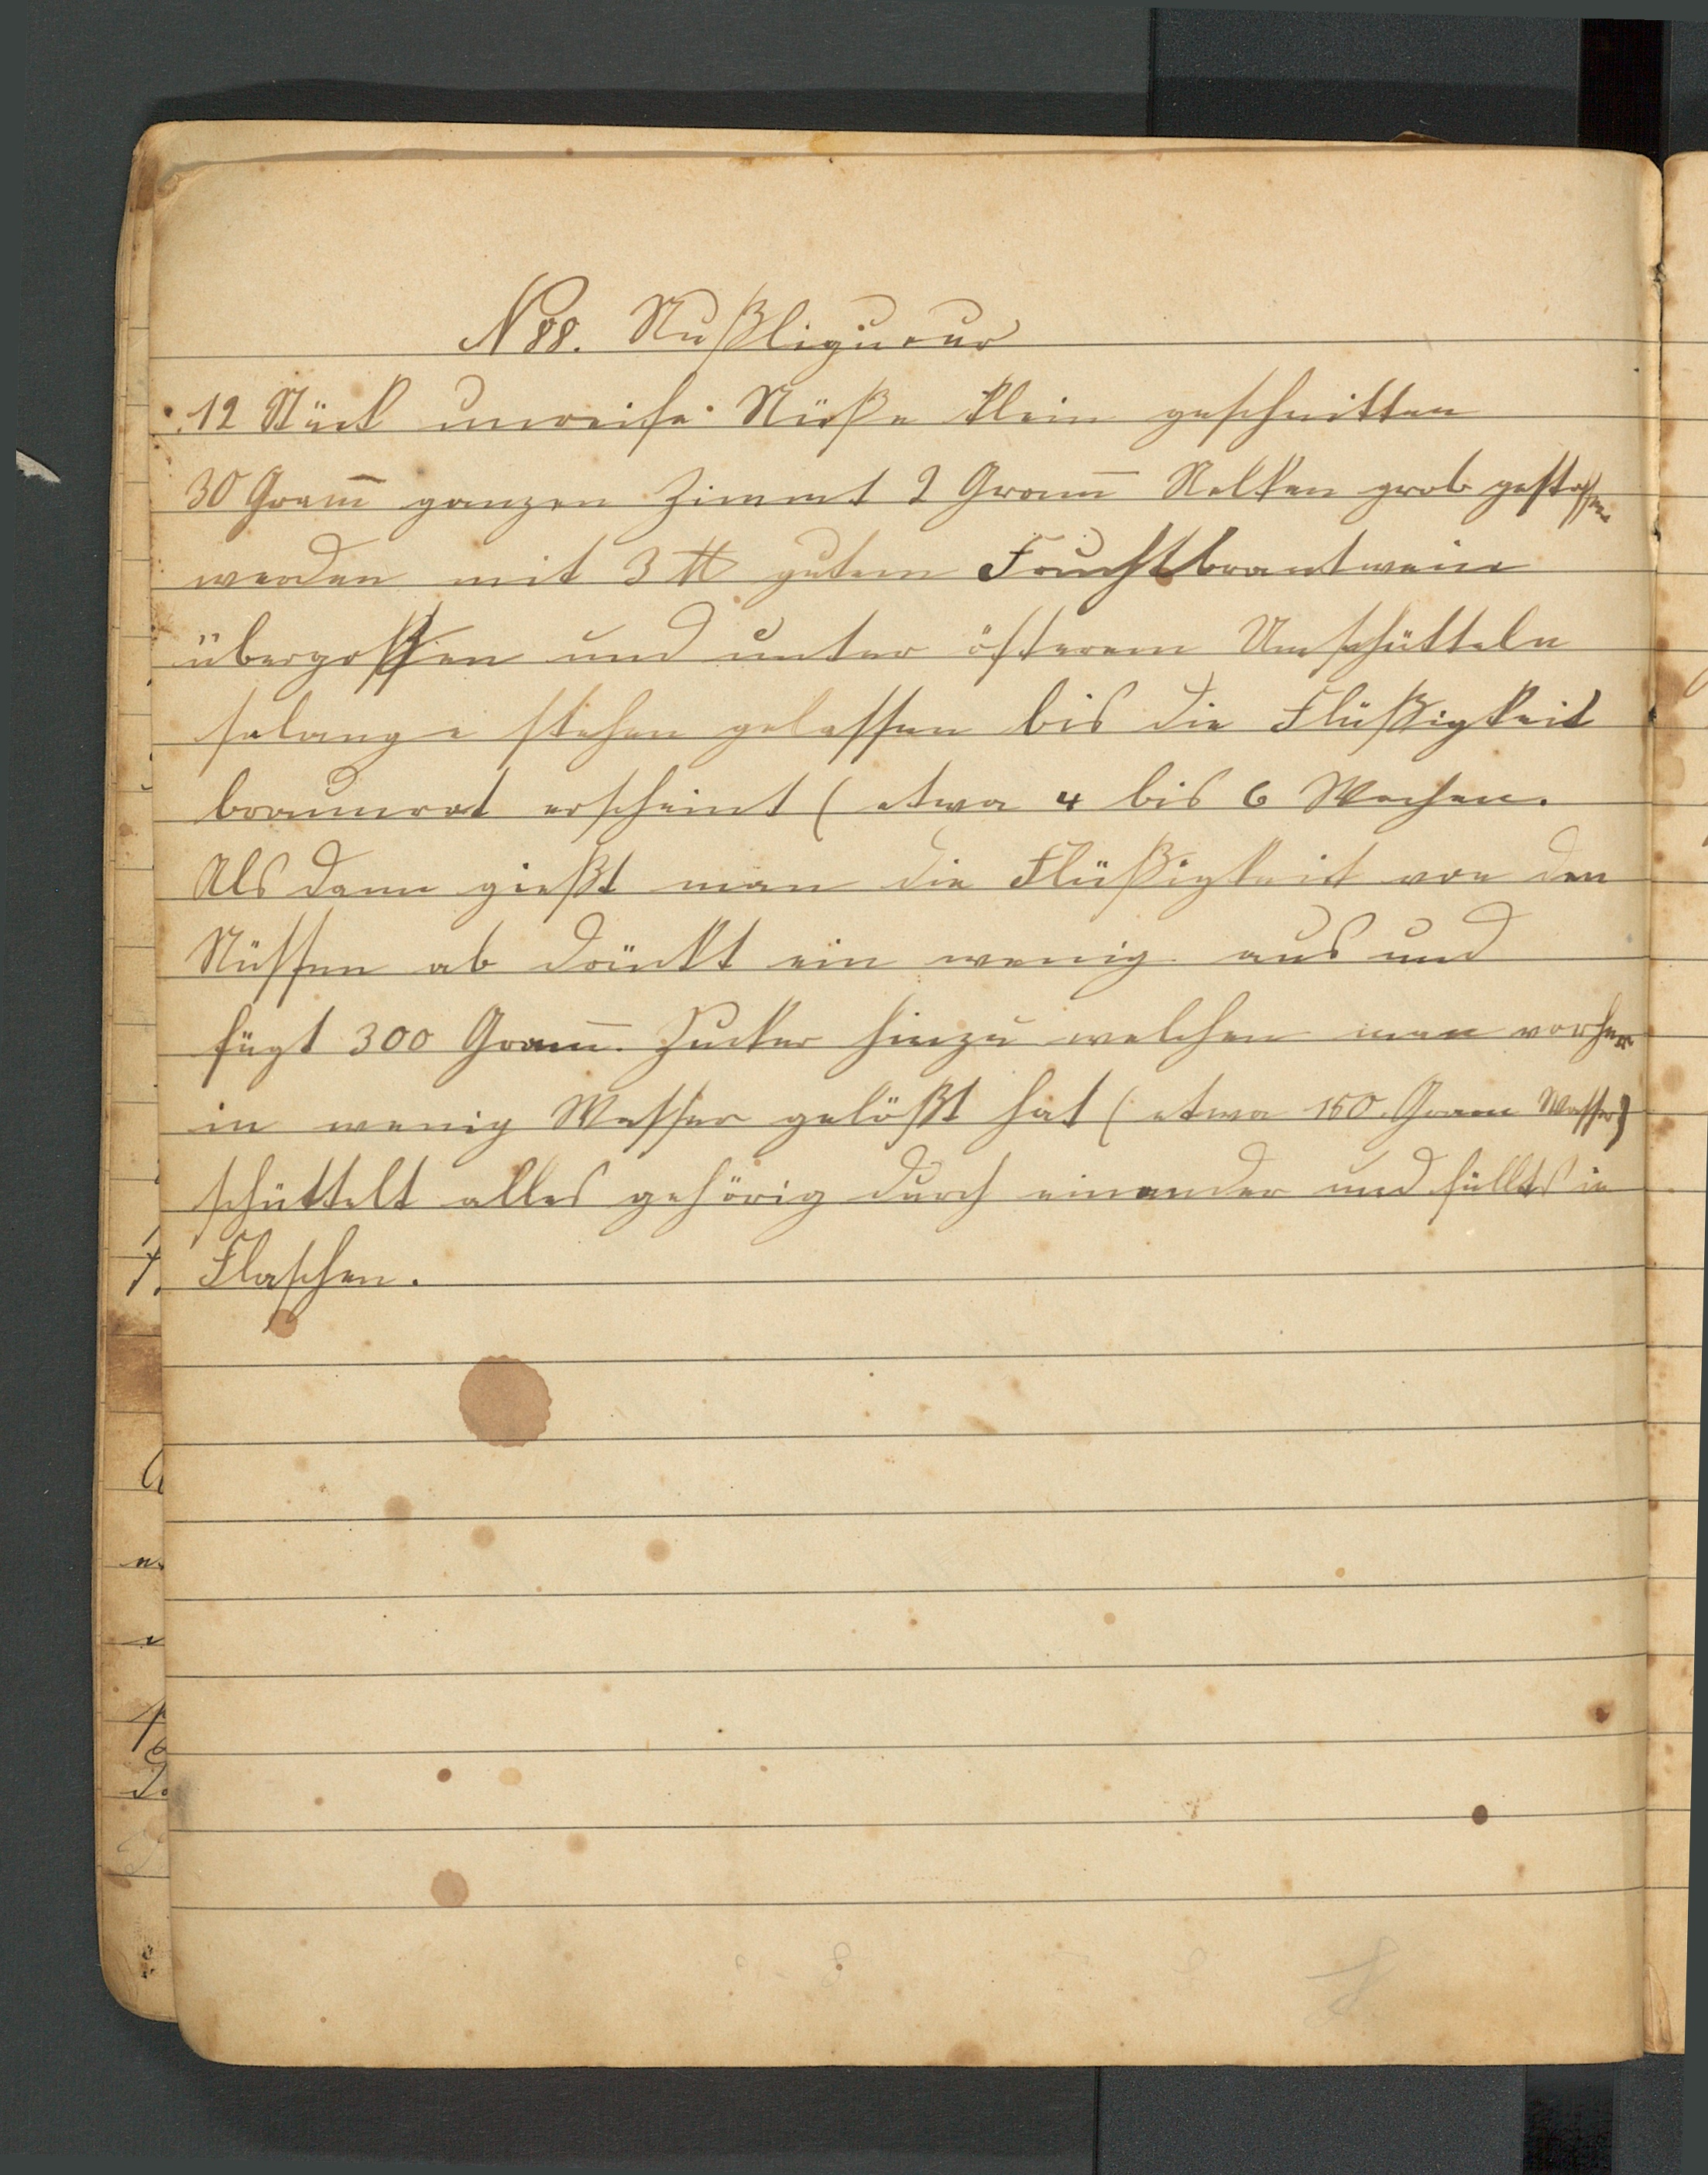 N 88. Nußliqueur
12 Stück unreife Nüße klein geschnitten
30 Gram̅ ganzen Zimmt 2 Gram̅ Nelken grob gestoßen
werden mit 3 ℔ gutem Fruchtbrantwein
übergossen und unter öfterem Umschütteln
solange stehen gelassen bis die Flüßigkeit
braunrot erscheint ( etwa 4 bis 6 Wochen.
Als dann gießt man die Flüßigkeit von den
Nüssen ab drückt ein wenig aus und
fügt 300 Gram̅. Zucker hinzu welchen man vorher
in wenig Wasser gelößt hat ( etwa 150. Gram Wasser)
schüttelt alles gehörig durch einander und füllts in
Flaschen.